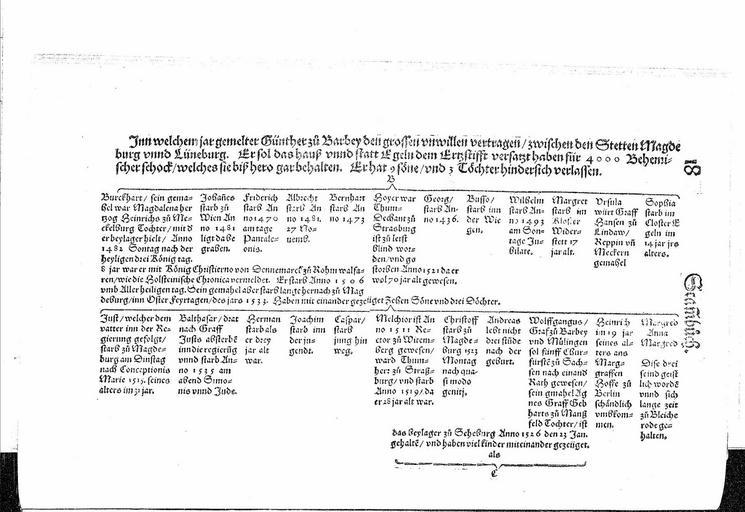 Inn welchem jar gemelter Günther zů Barbey den grossen vnwillen vertragen / zwischen den Stetten Magde
burg vnnd Lüneburg. Er sol das hauß vnnd statt Egeln dem Ertzstifft versatzt haben für 4000 Behemi-
scher schock / welches sie biß hero gar behalten. Er hat 9 söne / vnd 3 Töchter hinder sich verlassen.
B
Burckhart / sein gema-
hel war Magdalena her
tzog Heinrichs zů Me-
ckelburg Tochter / mit d
er beylager hielt / Anno
1482 Sontag nach der
heyligen drei König tag.
8 jar war er mit König Christierno von Dennemarck zů Rohm walfa-
ren / wie die Holsteinische Chronica vermeldet. Er starb Anno 1506
vnd Aller heiligen tag. Sein gemahel aber starb lange hernach zů Mag
deburg / inn Oster Feyrtagen / des jars 1533. Haben mit einander gezeüget Zehen Söne vnd drei Döchter.
Johañes
starb zů
Wien An
no 1481
ligt da be
graben.
Friderich
starb An
no 1470
am tage
Pantale-
onis.
Albrecht
starb An
no 1481.
27 No-
uemb.
Bernhart
starb An
no 1473
Hoyer war
Thum-
Dechant zů
Strasburg
ist zů letst
blind wor-
den / vnd ge
storben Anno 1521 da er
wol 70 jar alt gewesen.
Georg /
starb An-
no 1436.
Busso /
starb inn
der Wie
gen.
Wilhelm
starb An-
no 1493
am Son-
tage Ju-
bilate.
Margret
starb im
Kloster
Wider-
stett 17
jar alt.
Vrsula
würt Graff
Hansen zů
Lindaw /
Reppin vñ
Meckern
gemahel
Sophia
starb im
Closter E
geln im
14 jar jrs
alters.
18
Just / welcher dem
vatter inn der Re-
gierung gefolgt /
starb zů Magde-
burg am Dinstag
nach Conceptionis
Marie 1515. seines
alters im 31 jar.
Balthasar / drat
nach Graff
Justs absterbē
inn die regierūg
vnnd starb An-
no 1535 am
abend Simo-
nis vnnd Jude.
Herman
starb als
er drey
jar alt
war.
Joachim
starb inn
der ju-
gend.
Caspar /
starb
jung hin
weg.
Melchior ist An
no 1511 Re-
ctor zů Witten-
berg gewesen /
ward Thum-
herr zů Straß-
burg / vnd starb
Anno 1519 / da
er 28 jar alt war.
Christoff
starb zů
Magde-
burg 1523
Montag
nach qua-
si modo
geniti.
Andreas
lebt nicht
drei stůnde
nach der
geburt.
Wolffgangus /
Graf zů Barbey
vnd Mülingen
sol fünff Chur-
fürstē zů Sach-
sen nach einand
Rath gewesen /
sein gmahel Ag
nes Graff Geb
harts zů Manß
feld Tochter / ist
das beylager zů Seheburg Anno 1526 den 23 Jan.
gehaltē / vnd haben viel kinder mit einander gezeüget.
als
C
Heinrich
im 19 jar
seines al-
ters ans
Marg-
graffen
Hoffe zů
Berlin
schändlich
vmbkom-
men.
Margred
Anna
Margred
Dise drei
seind geist
lich wordē
vnnd sich
lange zeit
zů Bleiche
rode ge-
halten.